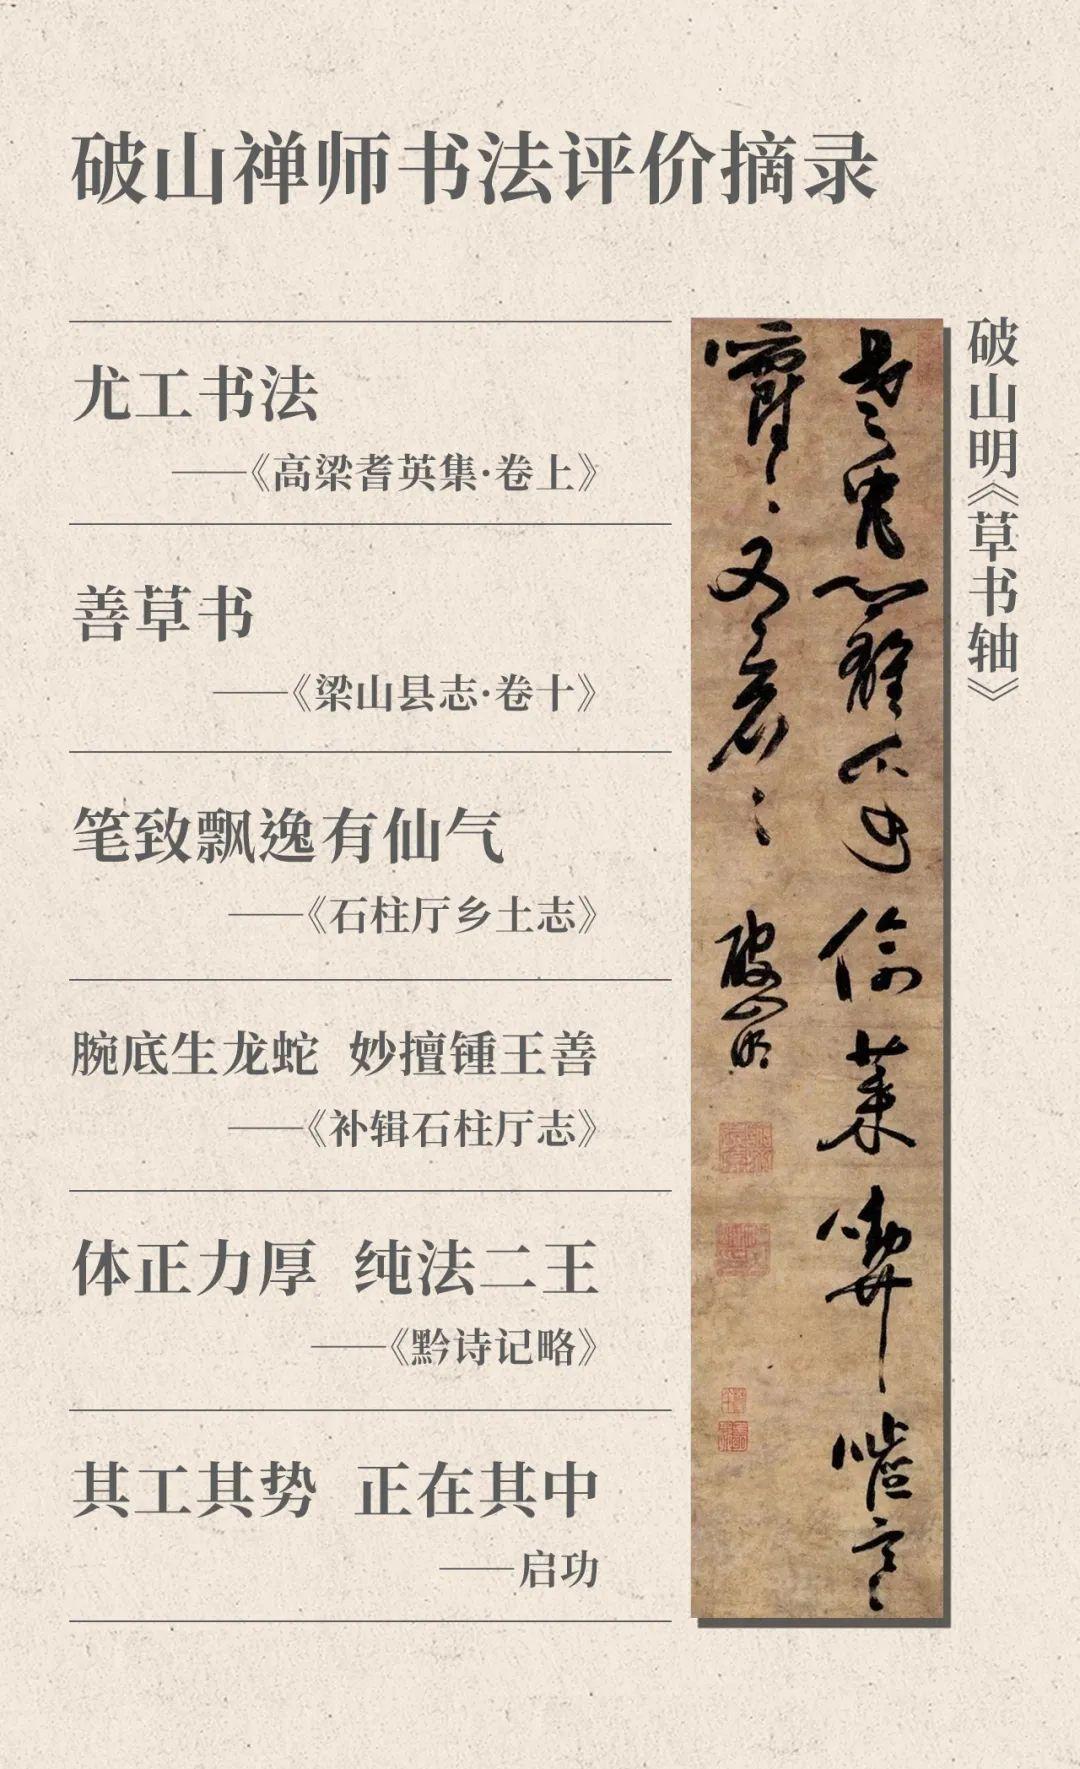 破山禅师书法评价摘录
尤工书法
——《高梁耆英集·卷上》
善草书
——《梁山县志·卷十》
笔致飘逸有仙气
——《石柱厅乡土志》
腕底生龙蛇 妙擅锺王善
——《补辑石柱厅志》
体正力厚 纯法二王
——《黔诗记略》
其工其势 正在其中
——启功
破山明《草书轴》
又
破山明